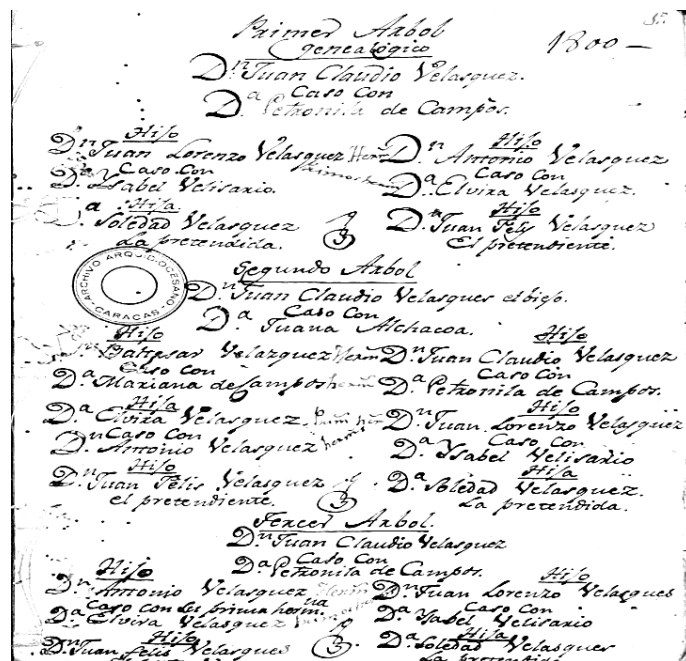 Primer Arbol
genealógico
1800 —
Dn. Juan Claudio Velasquez.
Caso Con
Da. Petronila de Campos.
Hijo
Dn. Juan Lorenzo Velasquez
Caso Con
Da. Ysabel Velisario.
Hija.
Da. Soledad Velasquez
La pretendida.
Hijo
Dn. Antonio Velasquez
Caso Con
Da. Elvira Velasquez.
Hijo
Dn. Juan Felis Velasquez
El pretendiente.
3
ARCHIVO ARQUIDIOCESANO
CARACAS
Segundo Arbol
Dn. Juan Claudio Velasques el biejo.
Caso Con
Da. Juana Alchacoa.
Hijo
Baltesar Velazquez
Caso con
Da. Mariana de Campos
Hija
Da. Elvira Velasquez
Caso Con
Dn. Antonio Velasquez
Hijo
Dn. Juan Felis Velasquez
el pretendiente.
Hijo
Dn. Juan Claudio Velasquez
Caso Con
Da. Petronila de Campos.
Hijo
Dn. Juan Lorenzo Velasquez
Caso Con
Da. Ysabel Velisario
Hija
Da. Soledad Velasquez.
La pretendida.
3
Tercer Arbol.
Dn. Juan Claudio Velasquez
Caso Con
Da. Petronila de Campos.
Hijo
Dn. Antonio Velasquez
Caso con su prima herma
Da. Elvira Velasquez
Hijo
Dn. Juan felis Velasques
Hijo
Dn. Juan Lorenzo Velasques
Caso Con
Da. Ysabel Velisario
Hija
Da. Soledad Velasques
La pretendida
3